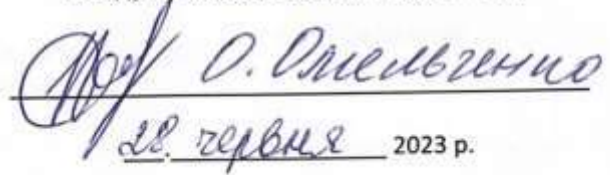 О. Омельченко
28. червня 2023 р.